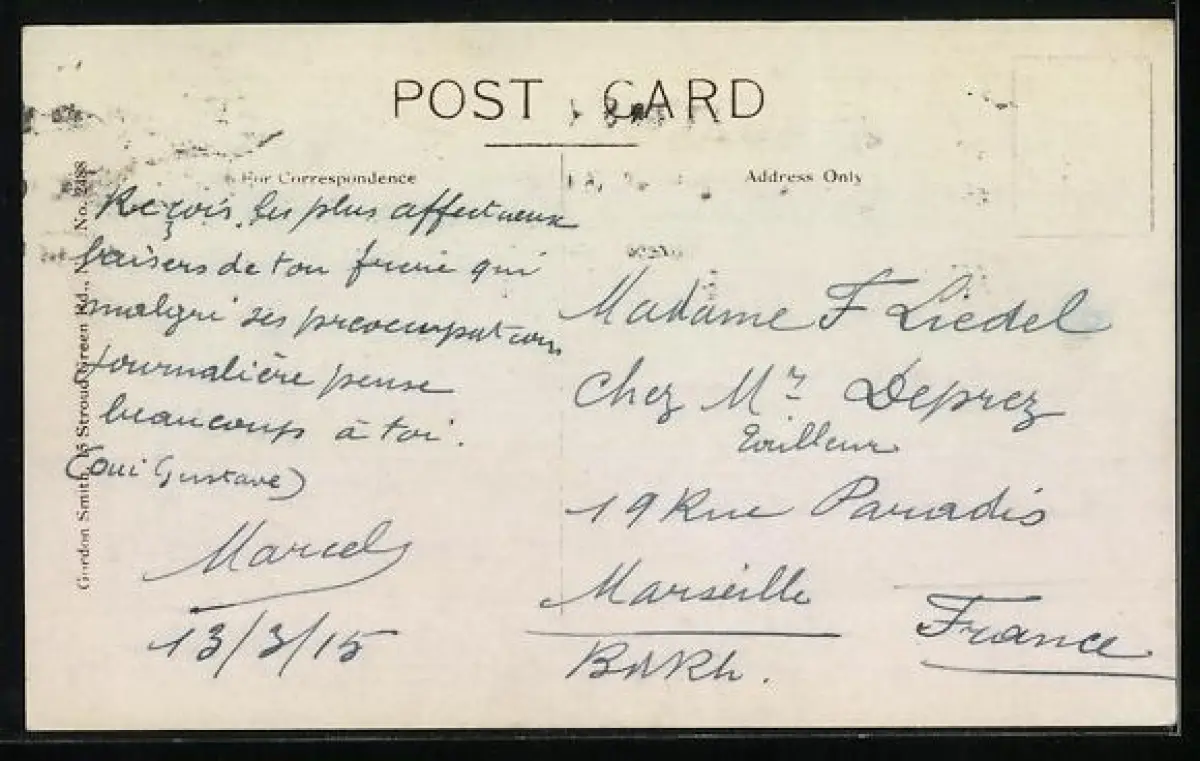 POST CARD
For Correspondence
Address Only
Reçois les plus affectueux
baisers de ton qui
malgré ses preocupations
journalière pense
beaucoup à toi.
(oui Gustave)
Marcel
13/3/15
Madame F Liedel
chez Mr Deprez
19 Rue Paradis
Marseille
France
BdRh.
Gordon Smith, 15 Stroud Green Rd., No. 2488